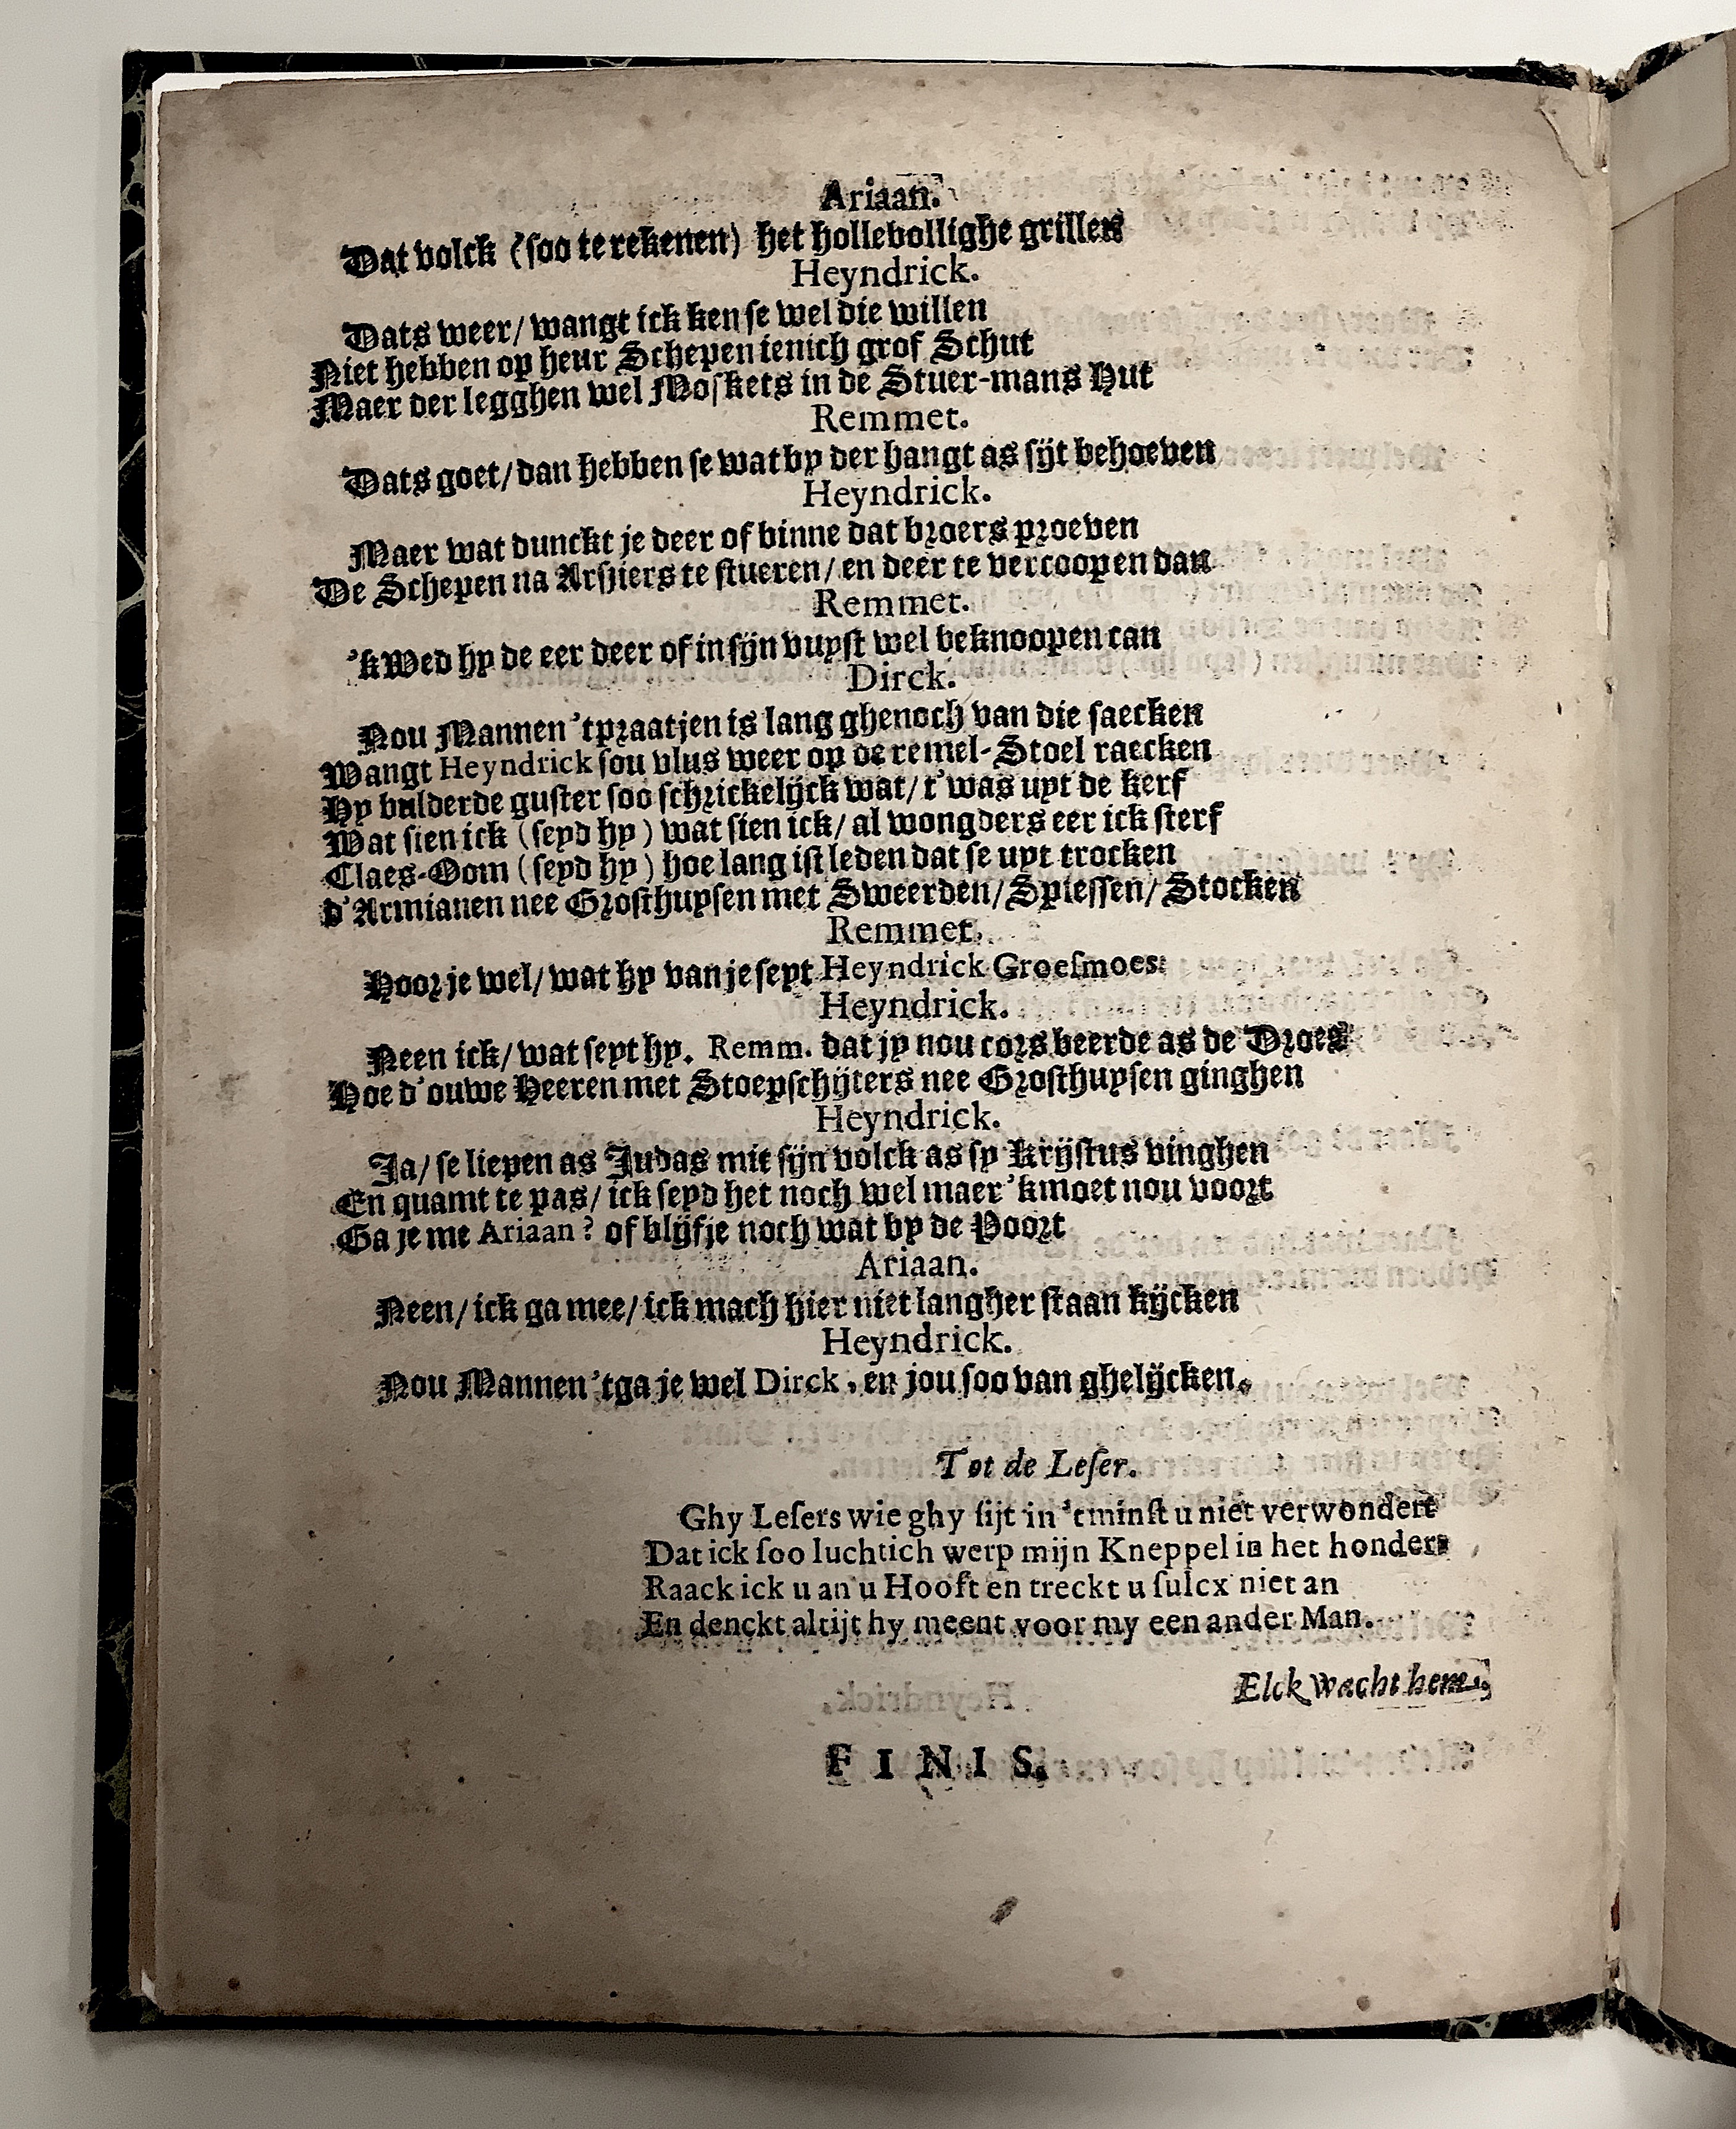 Ariaan.
Dat volck (soo te rekenen) het hollebollighe grillen
Heyndrick.
Dats weer/ wangt ick ken se wel die willen
Niet hebben op heur Schepen ienich grof Schut
Maer der legghen wel Moskets in de Stuer-mans Hut
Remmet.
Dats goet/ dan hebben se wat by der hangt as sijt behoeven
Heyndrick.
Maer wat dunckt je deer of binne dat broers proeven
De Schepen na Arsiers te stueren/ en deer te vercoopen dan
Remmet.
'k Wed hy de eer deer of in sijn vuyst wel beknoopen can
Dirck.
Nou Mannen 't praatjen is lang ghenoch van die saecken
Wangt Heyndrick sou vlus weer op de remel-Stoel raecken
Hy bulderde guster soo schrickelijck wat/ t'was uyt de kerf
Wat sien ick (seyd hy) wat sien ick/ al wongders eer ick sterf
Claes-Oom (seyd hy) hoe lang ist leden dat se uyt trocken
d'Armianen nee Grosthuysen met Sweerden/ Spiessen/ Stocken
Remmet.
Hoor je wel/ wat hy van je seyt Heyndrick Groesmoes:
Heyndrick.
Neen ick/ wat seyt hy. Remm. dat jy nou cors beerde as de Droes
Hoe d'ouwe Heeren met Stoepschijters nee Grosthuysen ginghen
Heyndrick.
Ja/ se liepen as Judas mit sijn volck as sy Krijstus vinghen
En quamt te pas/ ick seyd het noch wel maer 'k moet nou voort
Ga je me Ariaan? of blijf je noch wat by de Poort
Ariaan.
Neen/ ick ga mee/ ick mach hier niet langher staan kijcken
Heyndrick.
Nou Mannen 't ga je wel Dirck, en jou soo van ghelijcken.
Tot de Leser.
Ghy Lesers wie ghy sijt in 't minst u niet verwondert
Dat ick soo luchtich werp mijn Kneppel in het hondert
Raack ick u an u Hooft en treckt u sulcx niet an
En denckt altijt hy meent voor my een ander Man.
Elck wacht hem.
FINIS.